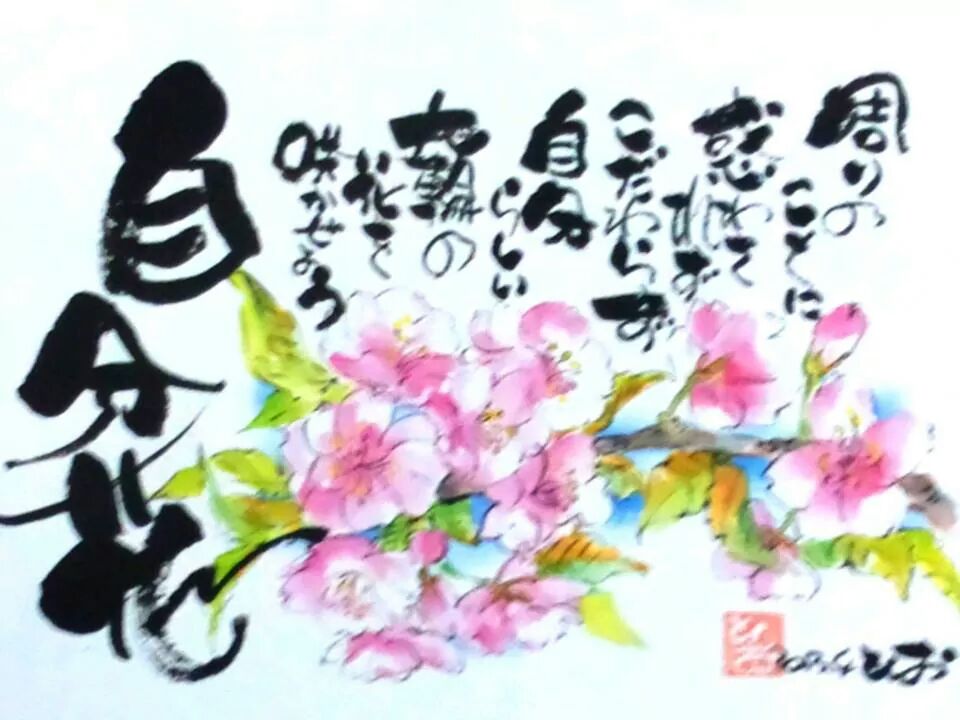 周りの
ことに
惑わさ
れず
こだわらず
自分
らしい
大輪の
花を
咲かせよう
自分花
ひお